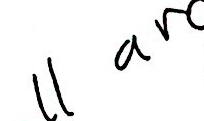 ll aro